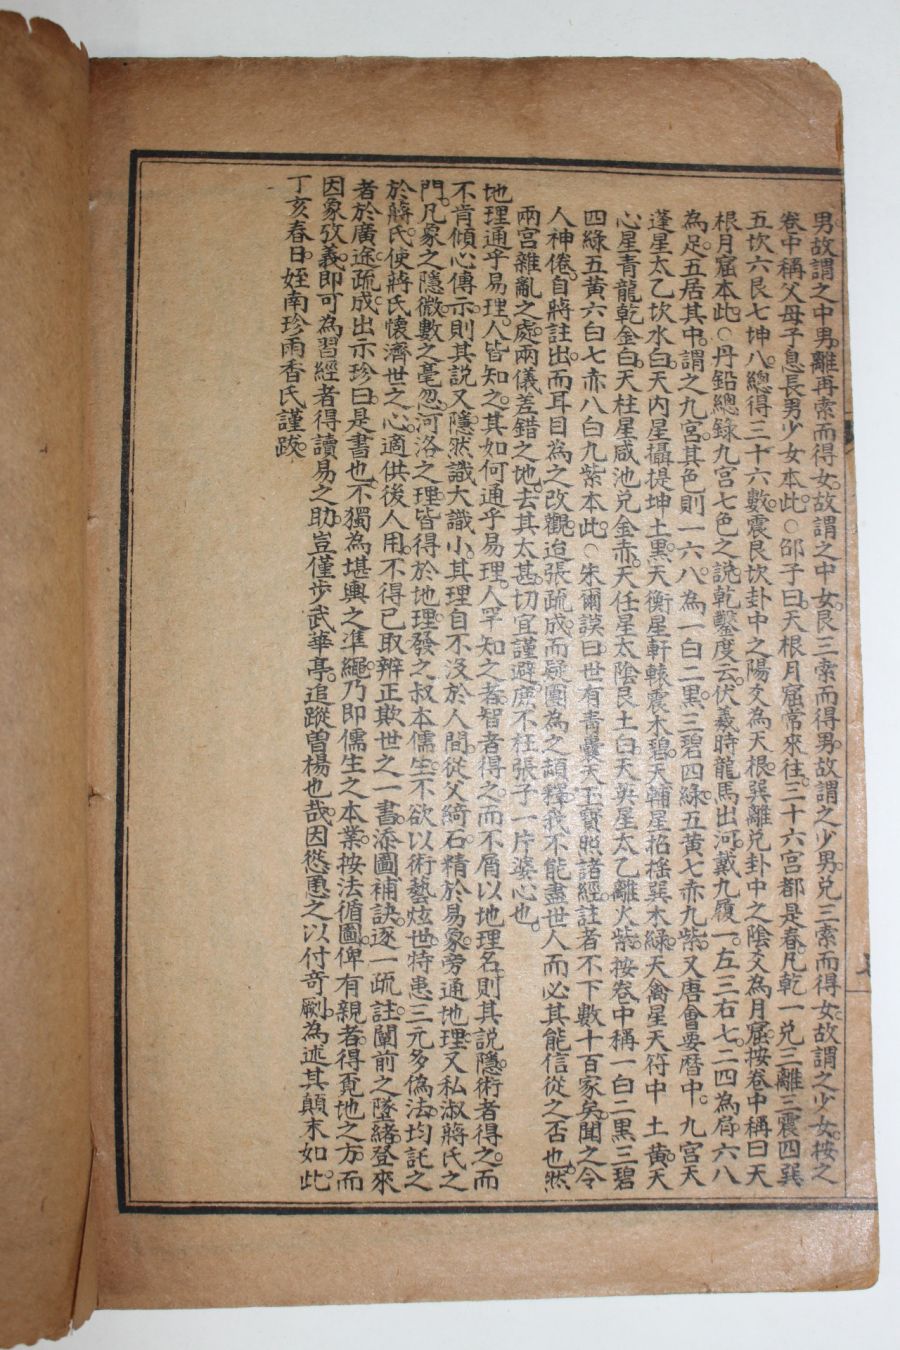 男故謂之中男離再索而得女故謂之中女艮三索而得男故謂之少男兑三索而得女故謂之少女按之
卷中稱父母子息長男少女本此○邵子曰天根月窟常來往三十六宫都是春凡乾一兑二離三震四巽
五坎六艮七坤八總得三十六數震艮坎卦中之陽爻為天根巽離兑卦中之陰爻為月窟按卷中稱曰天
根月窟本此○丹鉛總錄九宫七色之説乾鑿度云伏羲時龍馬出河戴九履一左三右七二四為肩六八
為足五居其中謂之九宫其色則一六八為一白二黑三碧四綠五黄七赤九紫又唐會要暦中九宫天
蓬星太乙坎水白天内星攝提坤土黑天衡星軒轅震木碧天輔星招摇巽木綠天禽星天符中土黄天
心星青龍乾金白天柱星咸池兑金赤天任星太陰艮土白天英星太乙離火紫按卷中稱一白二黑三碧
四綠五黄六白七赤八白九紫本此○朱爾謨曰世有青囊天玉寳照諸經註者不下數十百家矣聞之令
人神倦自蔣註出而耳目為之改觀迨張疏成而疑團為之頡釋我不能盡世人而必其能信從之否也然
兩宫雜亂之處兩儀差錯之地去其太甚切宜謹避庶不枉張子一片婆心也
地理通乎易理人皆知之其如何通乎易理人罕知之者智者得之而不屑以地理名則其説隱術者得之而
不肯傾心傳示則其説又隱然識大識小其理自不没於人間從父綺石精於易象旁通地理又私淑蔣氏之
門凡象之隱微數之毫忽河洛之理皆得於地理發之叔本儒生不欲以術藝炫世特患三元多偽法均託之
於蔣氏使蔣氏懷濟世之心適供後人用不得已取辨正欺世之一書添圖補訣逐一疏註闡前之墜緒登來
者於廣途疏成出示珍曰是書也不獨為堪輿之凖繩乃即儒生之本業按法循圖俾有親者得覓地之方而
因象攷義即可為習經者得讀易之助豈僅步武華亭追蹤曾楊也哉因慫恿之以付奇劂為述其顛末如此
丁亥春日姪南珍雨香氏謹跋